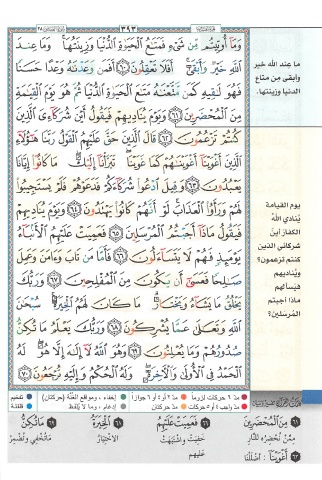 ٣٩٣
وَمَآ أُوتِيتُم مِّن شَىْءٍ فَمَتَٰعُ ٱلْحَيَوٰةِ ٱلدُّنْيَا وَزِينَتُهَا ۚ وَمَا عِندَ
ٱللَّهِ خَيْرٌ وَأَبْقَىٰٓ ۚ أَفَلَا تَعْقِلُونَ ٦٠ أَفَمَن وَعَدْنَٰهُ وَعْدًا حَسَنًا
فَهُوَ لَٰقِيهِ كَمَن مَّتَّعْنَٰهُ مَتَٰعَ ٱلْحَيَوٰةِ ٱلدُّنْيَا ثُمَّ هُوَ يَوْمَ ٱلْقِيَٰمَةِ
مِنَ ٱلْمُحْضَرِينَ ٦١ وَيَوْمَ يُنَادِيهِمْ فَيَقُولُ أَيْنَ شُرَكَآءِىَ ٱلَّذِينَ
كُنتُمْ تَزْعُمُونَ ٦٢ قَالَ ٱلَّذِينَ حَقَّ عَلَيْهِمُ ٱلْقَوْلُ رَبَّنَا هَٰٓؤُلَآءِ
ٱلَّذِينَ أَغْوَيْنَآ أَغْوَيْنَٰهُمْ كَمَا غَوَيْنَا ۖ تَبَرَّأْنَآ إِلَيْكَ ۖ مَا كَانُوٓا۟ إِيَّانَا
يَعْبُدُونَ ٦٣ وَقِيلَ ٱدْعُوا۟ شُرَكَآءَكُمْ فَدَعَوْهُمْ فَلَمْ يَسْتَجِيبُوا۟
لَهُمْ وَرَأَوُا۟ ٱلْعَذَابَ ۚ لَوْ أَنَّهُمْ كَانُوا۟ يَهْتَدُونَ ٦٤ وَيَوْمَ يُنَادِيهِمْ
فَيَقُولُ مَاذَآ أَجَبْتُمُ ٱلْمُرْسَلِينَ ٦٥ فَعَمِيَتْ عَلَيْهِمُ ٱلْأَنۢبَآءُ
يَوْمَئِذٍ فَهُمْ لَا يَتَسَآءَلُونَ ٦٦ فَأَمَّا مَن تَابَ وَءَامَنَ وَعَمِلَ
صَٰلِحًا فَعَسَىٰٓ أَن يَكُونَ مِنَ ٱلْمُفْلِحِينَ ٦٧ وَرَبُّكَ
يَخْلُقُ مَا يَشَآءُ وَيَخْتَارُ ۗ مَا كَانَ لَهُمُ ٱلْخِيَرَةُ ۚ سُبْحَٰنَ
ٱللَّهِ وَتَعَٰلَىٰ عَمَّا يُشْرِكُونَ ٦٨ وَرَبُّكَ يَعْلَمُ مَا تُكِنُّ
صُدُورُهُمْ وَمَا يُعْلِنُونَ ٦٩ وَهُوَ ٱللَّهُ لَآ إِلَٰهَ إِلَّا هُوَ ۖ لَهُ
ٱلْحَمْدُ فِى ٱلْأُولَىٰ وَٱلْءَاخِرَةِ ۖ وَلَهُ ٱلْحُكْمُ وَإِلَيْهِ تُرْجَعُونَ ٧٠
ما عِند الله خير
وأبقى من متاع
الدنيا وزينتها.
يوم القيامة
يُنادي الله
الكفار أين
شركائي الذين
كنتم تزعمون؟
ويُناديهم
فيسألهم
ماذا أجبتم
المُرسلين؟
مد ٦ حركات لزوماً
مد ٢ أو ٤ أو ٦ جوازاً
إخفاء، ومواقع الغُنَّة (حركتان)
تفخيم
مد واجب ٤ أو ٥ حركات
مد حركتان
إدغام، وما لا يُلفَظ
قلقلة
٦١ مِنَ الْمُحْضَرِينَ
مِمَّنْ نُحْضِرُهُ لِلنَّارِ
٦٣ أَغْوَيْنَا: أَضْلَلْنَا
٦٦ فَعَمِيَتْ عَلَيْهِمُ
خَفِيَتْ وَاشْتَبَهَتْ
عَلَيْهِم
٦٨ الْخِيَرَةُ
الاخْتِيَارُ
٦٩ مَا تُكِنُّ
مَا تُخْفِي وَتُضْمِرُ